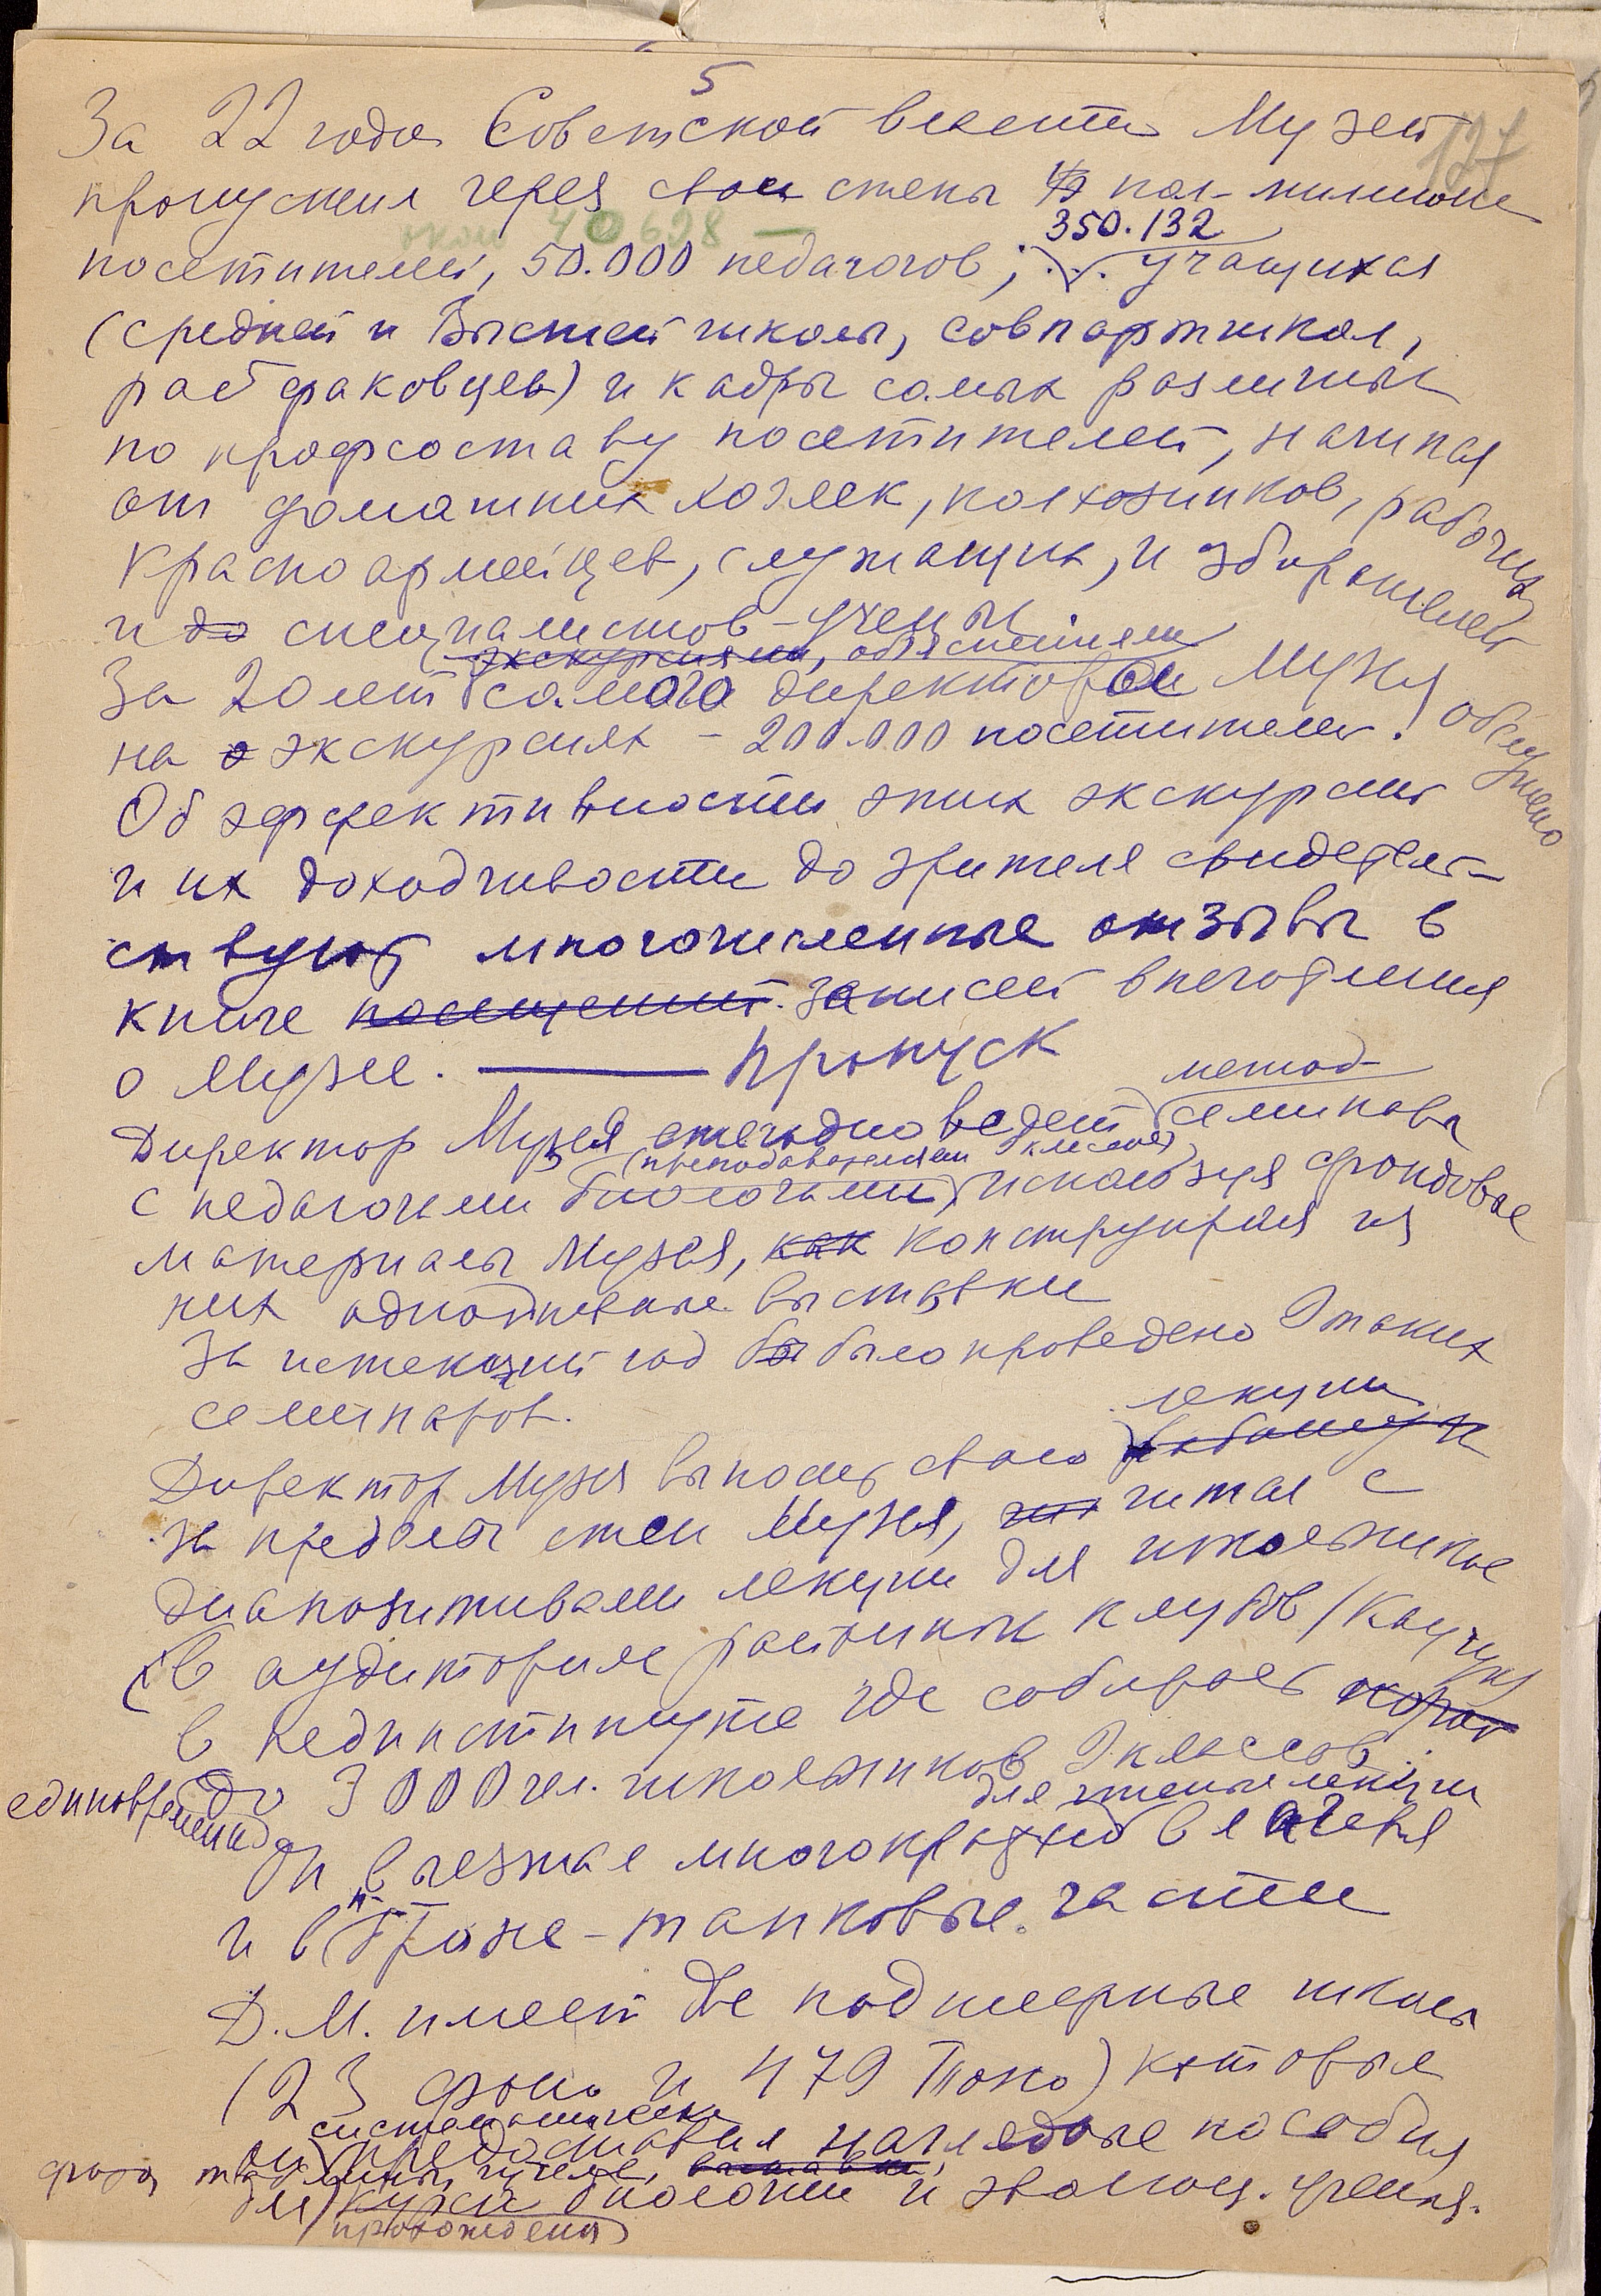 5
127
За 22 года Советской власти Музей
пропустил через свои стены 1/2 пол-миллиона
40698 —
350.132
посетителей, 50.000 педагогов, учащихся
(средней и Высшей школы, совпартшкол,
рабфаковцев) и кадры самых различных
по профсоставу посетителей, начиная
от домашних хозяек, колхозников, рабочих
красноармейцев, служащих, и
и до специалистов-ученых.
экскурсиями, объяснениями
За 20 лет самого директором Музея обслужено
на экскурсиях - 200.000 посетителей!
Об эффективности этих экскурсий
и их доходчивости до зрителя свидетель-
ствуют многочисленные отзывы в
книге посещений записей впечатления
о Музее. — Пропуск
метод
Директор Музея ежегодно ведет семинары
(преподавателями 9 классов)
с педагогами биологами, используя фондовые
материалы Музея, как конструируя из
них однодневные выставки
За истекший год было проведено 9 таких
семинаров.
лекции
Директор Музея выносит свою работу и
за пределы стен Музея, читая с
диапозитивами лекции для школьников
(в аудитории районных клубов (Каучук)
в пединституте где собирает
единовременно до 3000 чел. школьников 9 классов.
для чтения лекции
Он выезжал многократно в лагеря
и в Броне-танковые части
Д.М. имеет две подшефные школы
(23 фоно и 479 Тоно) которые
систематически
он предоставил наглядные пособия
фото, таблицы, чучела, выставки,
для курса биологии и эволюц. учения.
прохождения